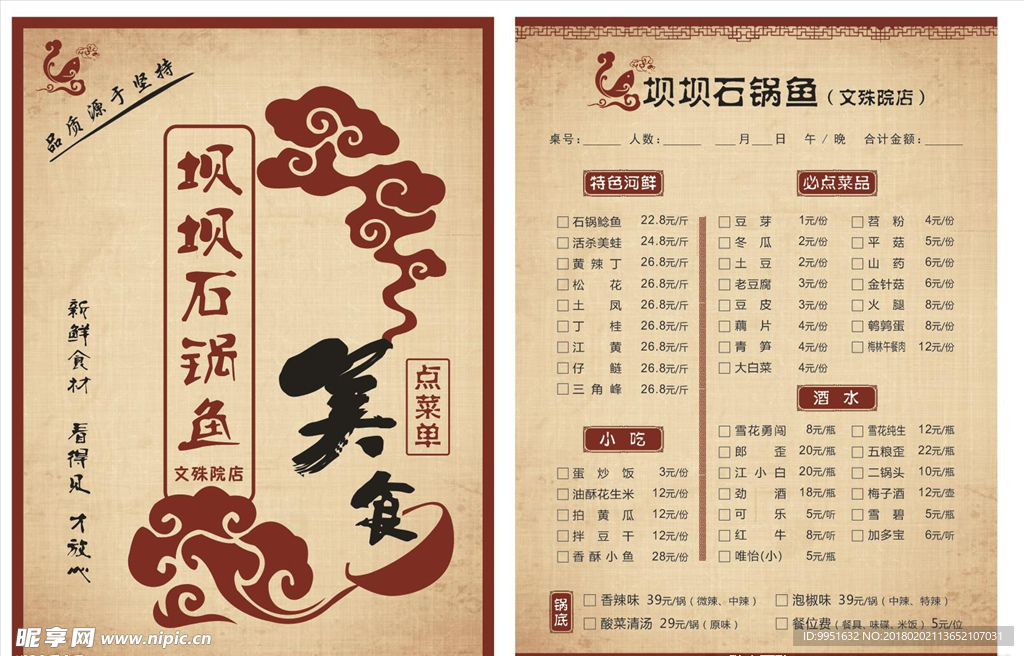 品质源于坚持
坝坝石锅鱼
文殊院店
新鲜食材 看得见 才放心
美食
点菜单
坝坝石锅鱼（文殊院店）
桌号：_____ 人数：_____ ___月___日 午 / 晚 合计金额：_____
特色河鲜
石锅鲶鱼 22.8元/斤
活杀美蛙 24.8元/斤
黄辣丁 26.8元/斤
松花 26.8元/斤
土凤 26.8元/斤
丁桂 26.8元/斤
江黄 26.8元/斤
仔鲢 26.8元/斤
三角峰 26.8元/斤
小吃
蛋炒饭 3元/份
油酥花生米 12元/份
拍黄瓜 12元/份
拌豆干 12元/份
香酥小鱼 28元/份
必点菜品
豆芽 1元/份 苕粉 4元/份
冬瓜 2元/份 平菇 5元/份
土豆 2元/份 山药 6元/份
老豆腐 3元/份 金针菇 6元/份
豆皮 3元/份 火腿 8元/份
藕片 4元/份 鹌鹑蛋 8元/份
青笋 4元/份 梅林午餐肉 12元/份
大白菜 4元/份
酒水
雪花勇闯 8元/瓶 雪花纯生 12元/瓶
郎歪 20元/瓶 五粮歪 22元/瓶
江小白 20元/瓶 二锅头 10元/瓶
劲酒 18元/瓶 梅子酒 12元/壶
可乐 5元/听 雪碧 5元/瓶
红牛 8元/听 加多宝 6元/听
唯怡(小) 5元/瓶
锅底
香辣味 39元/锅（微辣、中辣） 泡椒味 39元/锅（中辣、特辣）
酸菜清汤 29元/锅（原味） 餐位费（餐具、味碟、米饭）5元/位
昵享网 www.nipic.cn
ID:9951632 NO:20180202113652107031